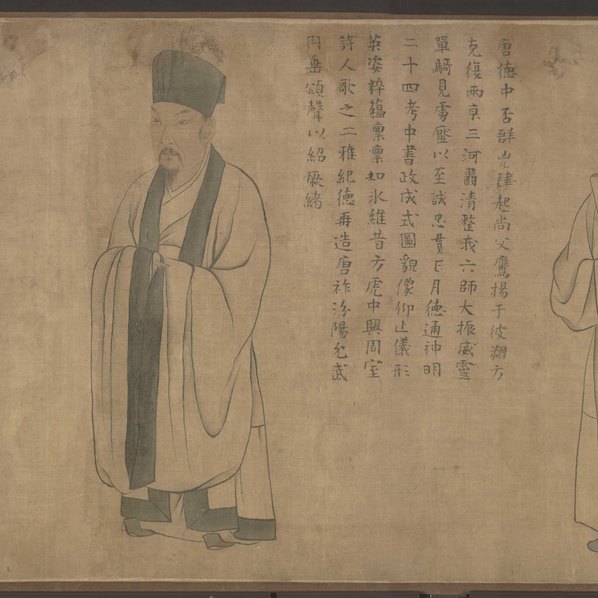 唐德中否群兇肆起尚父鷹揚于彼朔方
克復兩京三河肅清整我六師大振威靈
單騎見虜壓以至誠忠貫日月德通神明
二十四考中書政成式圖貌像仰止儀形
英姿粹蘊稟稟如氷維昔方虎中興周室
詩人歌之二雅紀德再造唐祚汾陽允武
用垂頌聲以紹厥緒